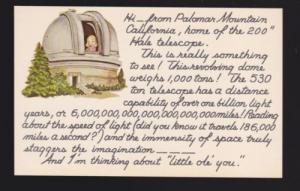 Hi — from Palomar Mountain
California, home of the 200"
Hale telescope.
This is really something
to see! This revolving dome
weighs 1,000 tons! The 530
ton telescope has a distance
capability of over one billion light
years, or 6,000,000,000,000,000,000,000 miles! Reading
about the speed of light (did you know it travels 186,000
miles a second?) and the immensity of space truly
staggers the imagination — — — —
And I'm thinking about "little ole' you."